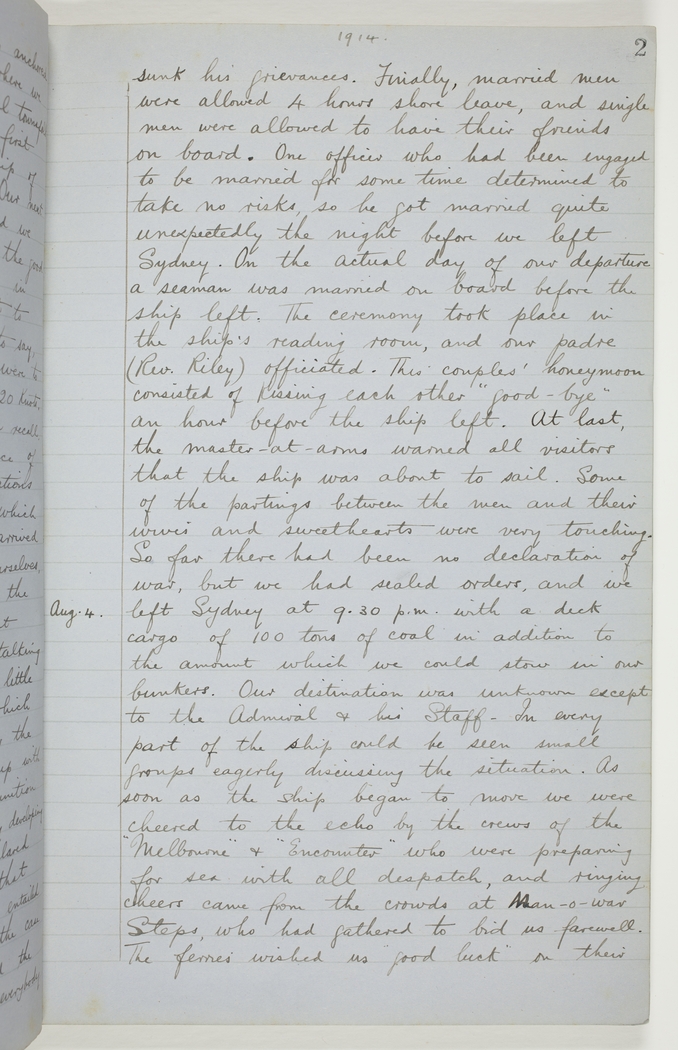 1914.
2
sunk his grievances. Finally, married men
were allowed 4 hours shore leave, and single
men were allowed to have their friends
on board. One officer who had been engaged
to be married for some time determined to
take no risks, so he got married quite
unexpectedly the night before we left
Sydney. On the actual day of our departure
a seaman was married on board before the
ship left. The ceremony took place in
the ship's reading room, and our padre
(Rev. Riley) officiated. This couples' honeymoon
consisted of kissing each other "good-bye"
an hour before the ship left. At last,
the master-at-arms warned all visitors
that the ship was about to sail. Some
of the partings between the men and their
wives and sweethearts were very touching.
So far there had been no declaration of
war, but we had sealed orders, and we
Aug. 4. left Sydney at 9.30 p.m. with a deck
cargo of 100 tons of coal in addition to
the amount which we could stow in our
bunkers. Our destination was unknown except
to the Admiral & his Staff - In every
part of the ship could be seen small
groups eagerly discussing the situation. As
soon as the ship began to move we were
cheered to the echo by the crews of the
"Melbourne" & "Encounter" who were preparing
for sea with all despatch, and ringing
cheers came from the crowds at Man-o-war
Steps, who had gathered to bid us farewell.
The ferries wished us "good luck" on their